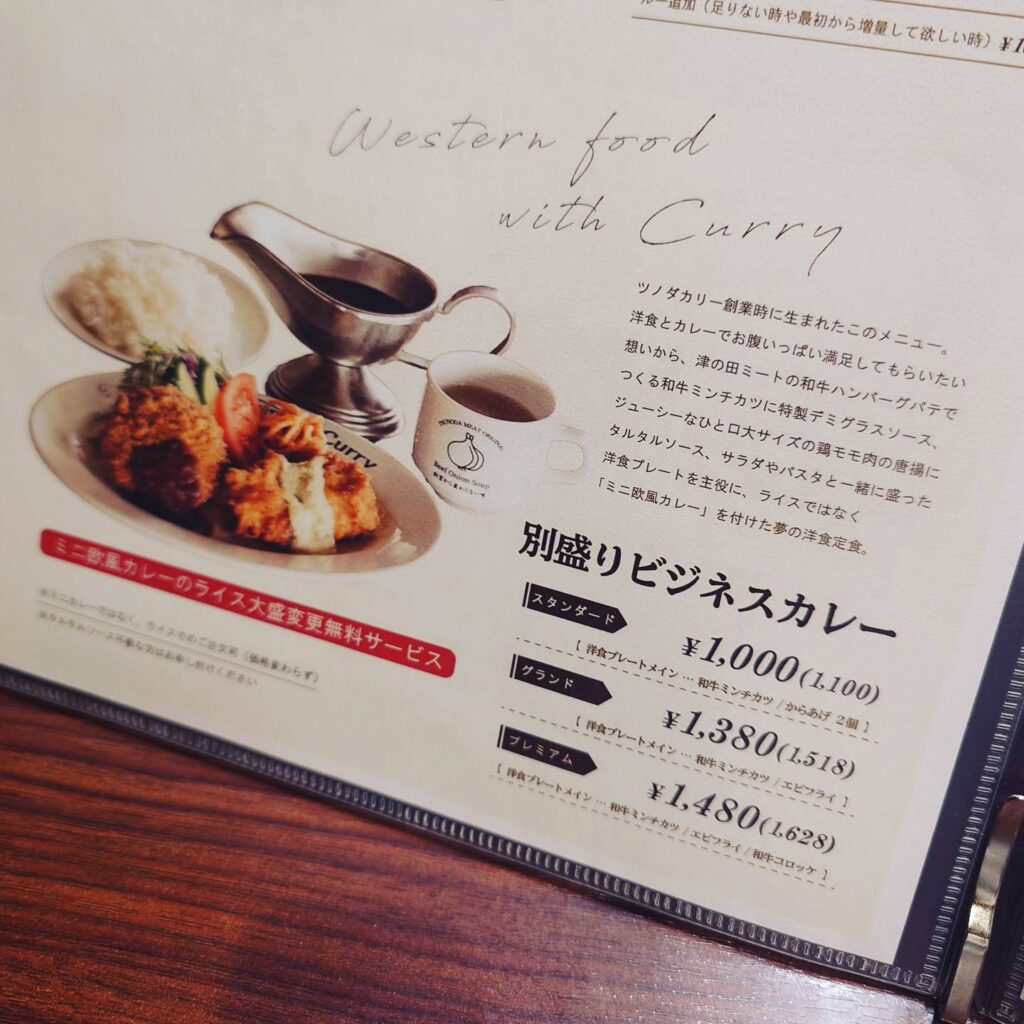 ルー追加（足りない時や最初から増量して欲しい時）
Western food
with Curry
ツノダカリー創業時に生まれたこのメニュー。
洋食とカレーでお腹いっぱい満足してもらいたい
想いから、津の田ミートの和牛ハンバーグパテで
つくる和牛ミンチカツに特製デミグラスソース、
ジューシーなひと口大サイズの鶏モモ肉の唐揚に
タルタルソース、サラダやパスタと一緒に盛った
洋食プレートを主役に、ライスではなく
「ミニ欧風カレー」を付けた夢の洋食定食。
Curry
TSUNODA MEAT ORIGINAL
Beef Onion Soup
創業から変わらない味
ミニ欧風カレーのライス大盛変更無料サービス
※ミニカレーではなく、ライスでのご注文可（価格変わらず）
※タルタルソース不要な方はお申し付けください
別盛りビジネスカレー
スタンダード
¥1,000(1,100)
[ 洋食プレートメイン … 和牛ミンチカツ / からあげ 2個 ]
グランド
¥1,380(1,518)
[ 洋食プレートメイン … 和牛ミンチカツ / エビフライ ]
プレミアム
¥1,480(1,628)
[ 洋食プレートメイン … 和牛ミンチカツ / エビフライ / 和牛コロッケ ]